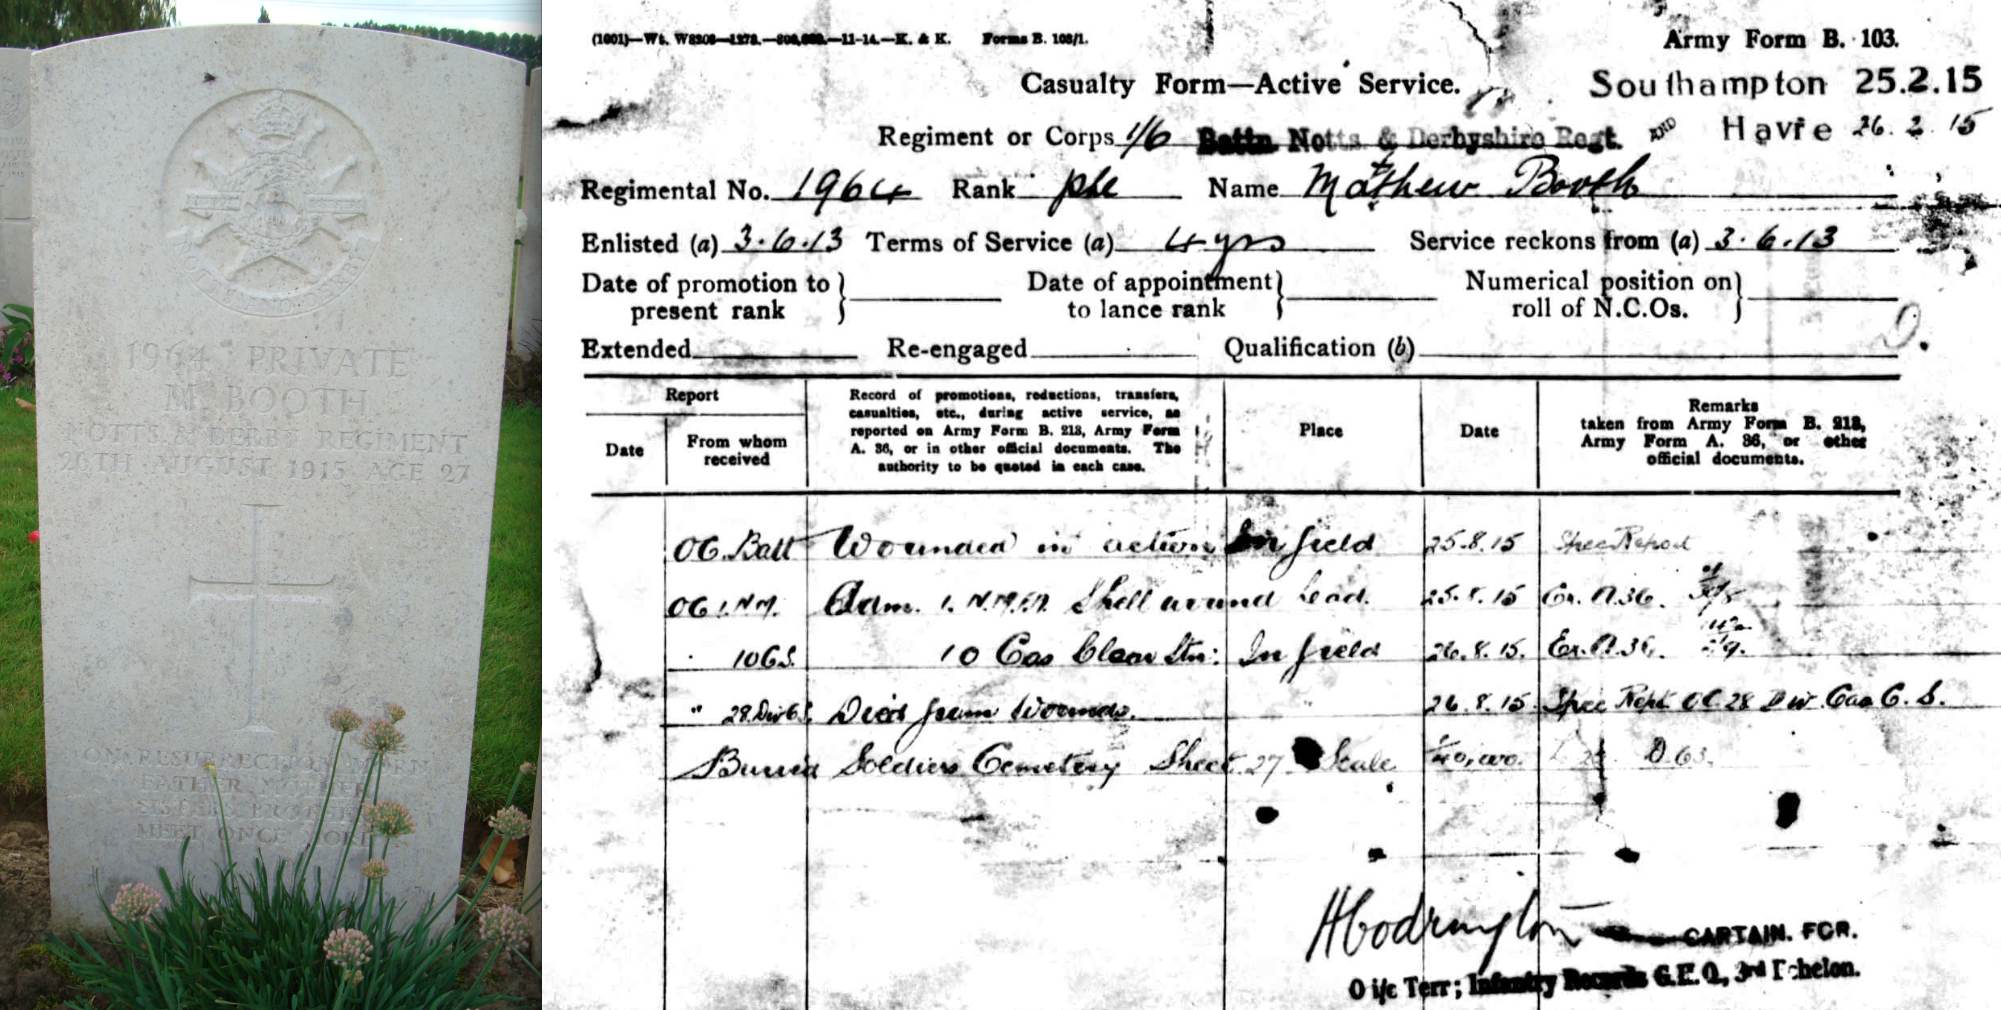 1964 PRIVATE
M. BOOTH
NOTTS & DERBY REGIMENT
26TH AUGUST 1915 AGE 27
ON RESURRECTION MORN
FATHER MOTHER
MEET ONCE MORE
(1001)—Wt. W3206—1273.—800,000.—11-14.—K. & K. Forms B. 103/1.
Army Form B. 103.
Casualty Form—Active Service.
Southampton 25.2.15
Regiment or Corps 1/6 Battn Notts & Derbyshire Regt. AND Havre 26.2.15
Regimental No. 1964 Rank pte Name Mathew Booth
Enlisted (a) 3.6.13 Terms of Service (a) 4 yrs Service reckons from (a) 3.6.13
Date of promotion to present rank } Date of appointment to lance rank } Numerical position on roll of N.C.Os. }
Extended Re-engaged Qualification (b)
Report
Date
From whom received
Record of promotions, reductions, transfers,
casualties, etc., during active service, as
reported on Army Form B. 213, Army Form
A. 36, or in other official documents. The
authority to be quoted in each case.
Place
Date
Remarks
taken from Army Form B. 213,
Army Form A. 36, or other
official documents.
OC. Batt Wounded in action In field 25.8.15 Spec Report
OC 1.N.M. Adm. 1. N.M. Shell wound head. 25.8.15 A.36.
10 Cas Clear Stn: In field 26.8.15. A.36.
" 28 Div Died from Wounds. 26.8.15 Spec Rept OC 28 Div. Cas C. S.
Buried Soldiers Cemetery Sheet 27 Scale D.63.
HCodrington
CAPTAIN. FOR.
O i/c Terr; Infantry Records G.H.Q, 3rd Echelon.